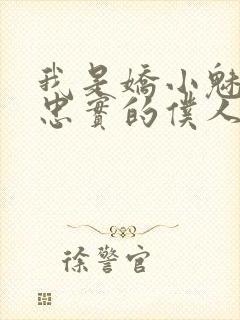 我是嬌小魅
忠實的僕人
徐警官